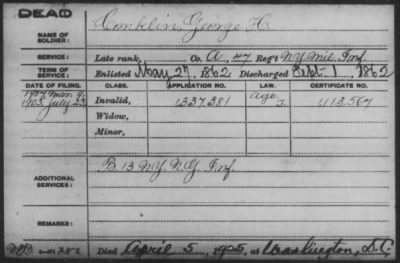 DEAD
NAME OF SOLDIER: Conklin, George H.
SERVICE: Late rank, Co. A, 47 Reg't N.Y. Mil. Inf.
TERM OF SERVICE: Enlisted May 27, 1862 Discharged Sept. 1, 1862
DATE OF FILING. CLASS. APPLICATION NO. LAW. CERTIFICATE NO.
1907 Mar. 9 Age
July 23 Invalid, 1337381 J. 413.567
Widow,
Minor,
ADDITIONAL SERVICES: B 13 N.Y. N.G. Inf.
REMARKS:
Died April 5, 1925, at Washington, D.C.